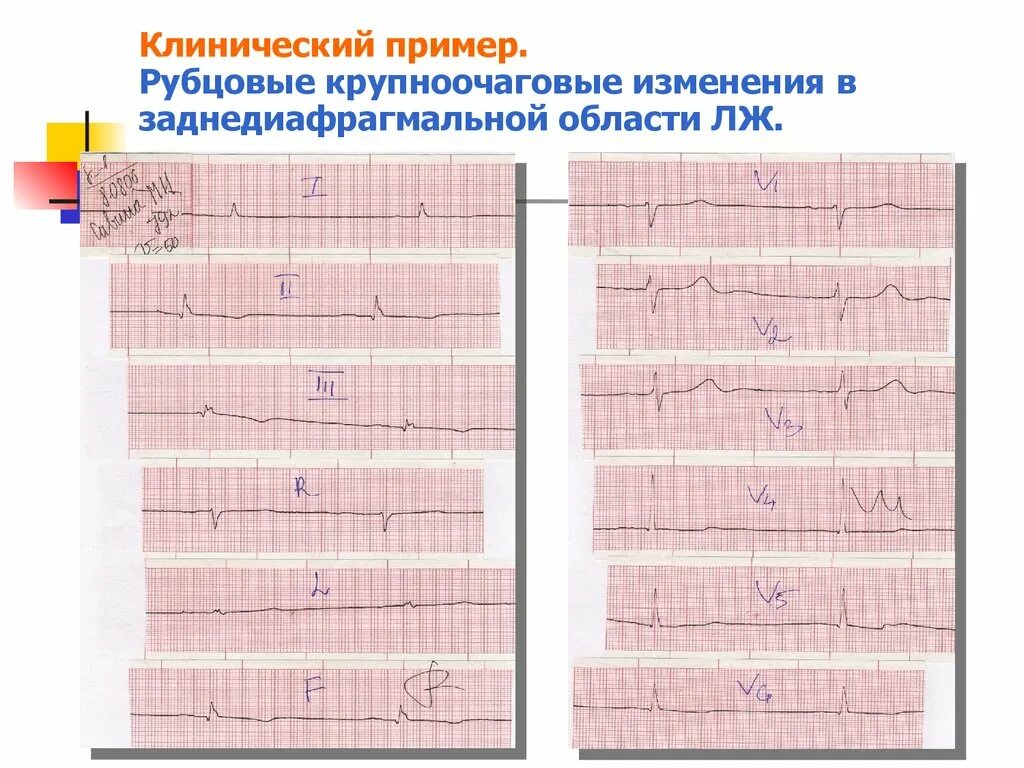 Клинический пример.
Рубцовые крупноочаговые изменения в
заднедиафрагмальной области ЛЖ.
I
II
III
R
L
F
V1
V2
V3
V4
V5
V6